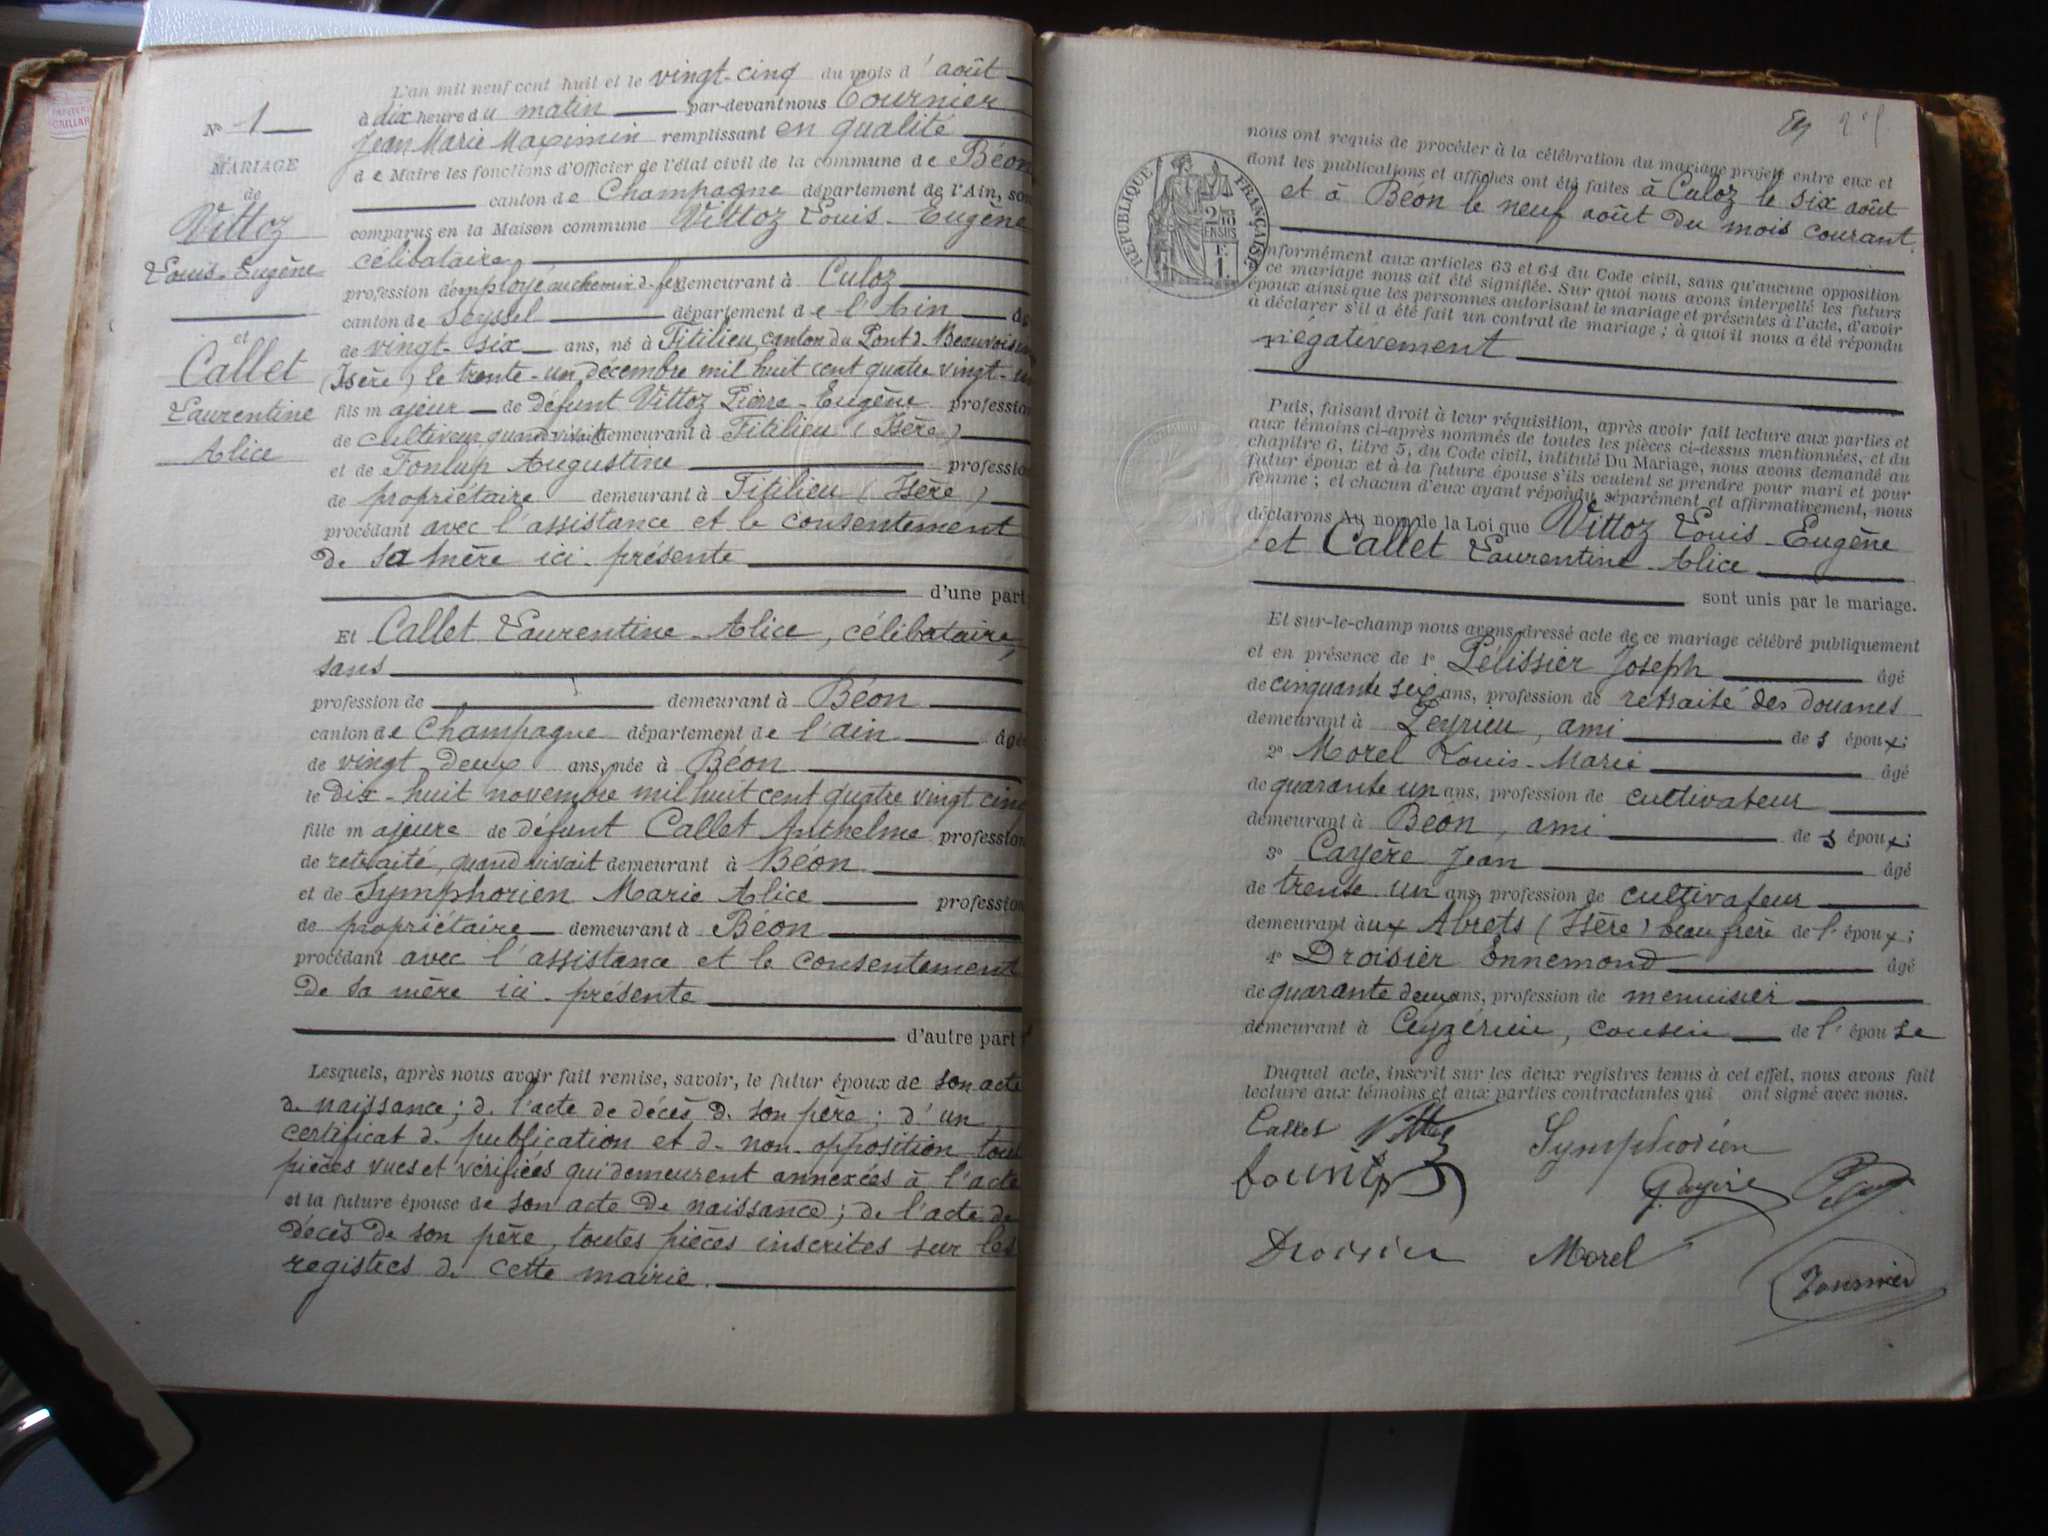 N° 1
MARIAGE
de
Vittoz
Louis-Eugène
et
Callet
Laurentine
Alice
L'an mil neuf cent huit et le vingt-cinq du mois d'août
à dix heure du matin par-devant nous Tournier
Jean Marie Maximin remplissant en qualité
de Maire les fonctions d'Officier de l'état civil de la commune de Béon
canton de Champagne département de l'Ain, son
comparus en la Maison commune Vittoz Louis-Eugène
célibataire
profession d'employé au chemin d. fer demeurant à Culoz
canton de Seyssel département de l'Ain âg
de vingt-six ans, né à Fitilieu, canton du Pont d. Beauvoisin
(Isère) le trente-un décembre mil huit cent quatre vingt-un
fils majeur de défunt Vittoz Pierre-Eugène profession
de cultiveur quand vivait demeurant à Fitilieu (Isère)
et de Fonlup Augustine profession
de propriétaire demeurant à Fitilieu (Isère)
procédant avec l'assistance et le consentement
de sa mère ici-présente
d'une part
Et Callet Laurentine-Alice, célibataire,
sans
profession de demeurant à Béon
canton de Champagne département de l'ain âgé
de vingt deux ans, née à Béon
le dix-huit novembre mil huit cent quatre vingt cinq
fille majeure de défunt Callet Anthelme profession
de retraité, quand vivait demeurant à Béon
et de Symphorien Marie Alice profession
de propriétaire demeurant à Béon
procédant avec l'assistance et le consentement
de sa mère ici-présente
d'autre part
Lesquels, après nous avoir fait remise, savoir, le futur époux de son acte
d. naissance; d. l'acte de décès d. son père; d'un
certificat d. publication et d. non-opposition tout
pièces vues et vérifiées qui demeurent annexées à l'acte
et la future épouse de son acte de naissance; de l'acte de
décès de son père, toutes pièces inscrites sur les
registres d. cette mairie.
RÉPUBLIQUE FRANÇAISE
nous ont requis de procéder à la célébration du mariage projeté entre eux et
dont les publications et affiches ont été faites à Culoz le six août
et à Béon le neuf août du mois courant.
conformément aux articles 63 et 64 du Code civil, sans qu'aucune opposition
à ce mariage nous ait été signifiée. Sur quoi nous avons interpellé les futurs
époux ainsi que les personnes autorisant le mariage et présentes à l'acte, d'avoir
à déclarer s'il a été fait un contrat de mariage; à quoi il nous a été répondu
négativement
Puis, faisant droit à leur réquisition, après avoir fait lecture aux parties et
aux témoins ci-après nommés de toutes les pièces ci-dessus mentionnées, et du
chapitre 6, titre 5, du Code civil, intitulé Du Mariage, nous avons demandé au
futur époux et à la future épouse s'ils veulent se prendre pour mari et pour
femme; et chacun d'eux ayant répondu séparément et affirmativement, nous
déclarons Au nom de la Loi que Vittoz Louis-Eugène
et Callet Laurentine-Alice
sont unis par le mariage.
Et sur-le-champ nous avons dressé acte de ce mariage célébré publiquement
et en présence de 1° Pélissier Joseph âgé
de cinquante six ans, profession de retraité des douanes
demeurant à Peyrieu, ami des époux;
2° Morel Louis-Marie âgé
de quarante un ans, profession de cultivateur
demeurant à Béon, ami des époux;
3° Cayère Jean âgé
de trente un ans, profession de cultivateur
demeurant aux Abrets (Isère) beau frère de l'époux;
4° Droisier Ennemond âgé
de quarante deux ans, profession de menuisier
demeurant à Ceyzérieu, cousin de l'épouse
Duquel acte, inscrit sur les deux registres tenus à cet effet, nous avons fait
lecture aux témoins et aux parties contractantes qui ont signé avec nous.
Callet Vittoz Symphorien
Droisier Morel
Tournier